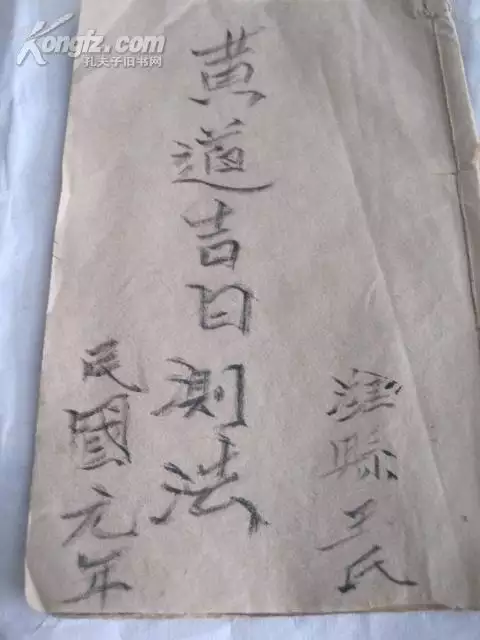 Kongfz.com
孔夫子旧书网
縣王氏
黄道吉日測法
民國元年